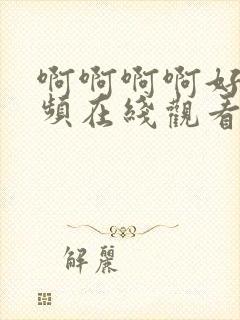 啊啊啊啊好
頻在綫觀看
解麗